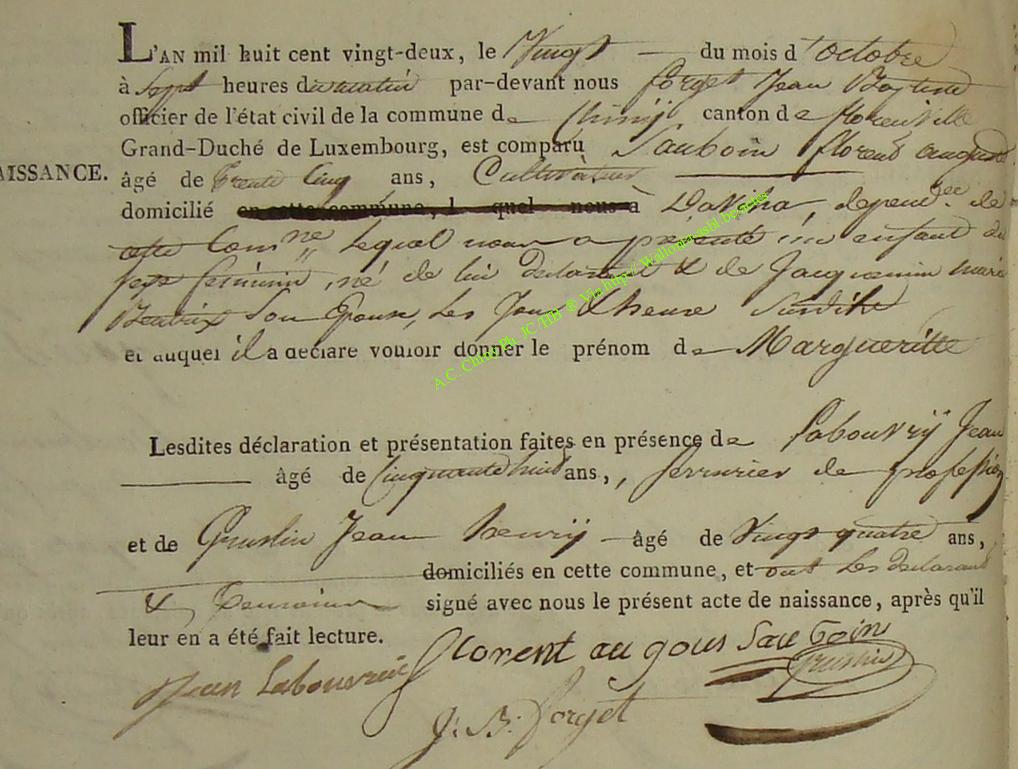 L'AN mil huit cent vingt-deux, le Vingt du mois d'octobre
à Sept heures du matin par-devant nous forget Jean Baptiste
officier de l'état civil de la commune de Chinÿ canton de florenville
Grand-Duché de Luxembourg, est comparu Sauboin florent auguste
AISSANCE.
âgé de trente Cinq ans, Cultivateur
domicilié en cette commune, l quel nous a à dépend.ce de
cette Comne lequel nous a présenté un enfant du
sexe féminin, né de lui déclarant & de Jacquemin marie
Béatrix Son Epouse, les Jour & heure Susdits
et auquel il a déclaré vouloir donner le prénom de Margueritte
Lesdites déclaration et présentation faites en présence de Labouvrÿ Jean
âgé de Cinquante huit ans, serrurier de profession
et de Gruslin Jean henry âgé de Vingt quatre ans,
domiciliés en cette commune, et ont les déclarant
& témoins signé avec nous le présent acte de naissance, après qu'il
leur en a été fait lecture.
florent au gous Sau boin
gruslin
Jean Labouvrie
J: B: forget
A.C. Chiny Ph. JC /HB ® Via http://